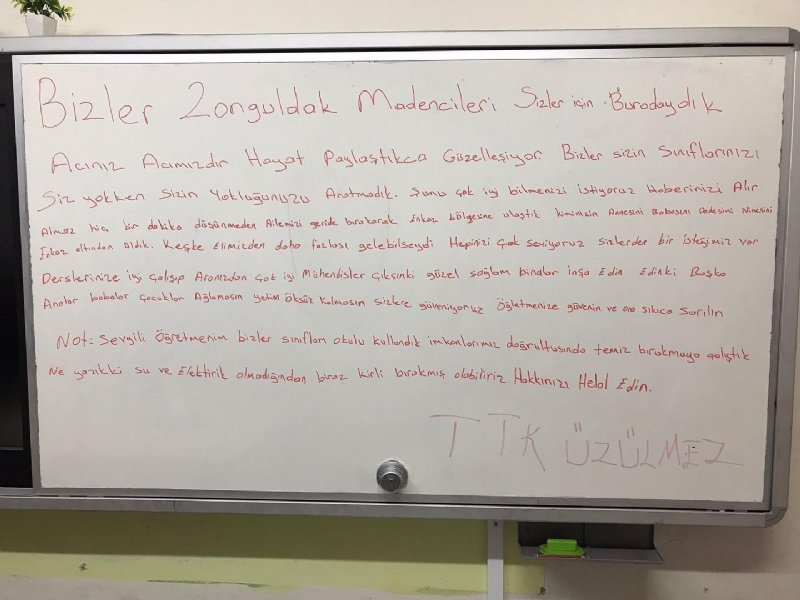 Bizler Zonguldak Madencileri Sizler için Buradaydık
Acınız Acımızdır Hayat Paylaştıkca Güzelleşiyor. Bizler sizin Sınıflarınızı
Siz yokken Sizin Yokluğunuzu Aratmadık. Şunu çok iyi bilmenizi istiyoruz Haberinizi Alır
Almaz hiç bir dakika düşünmeden Ailemizi geride bırakarak Enkaz bölgesine ulaştık kiminizin Annesini Babasını Dedesini Ninesini
Enkaz altından Aldık. Keşke Elimizden daha fazlası gelebilseydi Hepinizi Çok seviyoruz sizlerden bir isteğimiz var
Derslerinize iyi çalışıp Aranızdan Çok iyi Mühendisler çıksınki güzel sağlam binalar inşa Edin Edinki Başka
Analar babalar çocuklar Ağlamasın yetim Öksüz Kalmasın sizlere güveniyoruz Öğretmenize güvenin ve ona sıkıca Sarılın
Not: Sevgili Öğretmenim bizler sınıfları okulu kullandık imkanlarımız doğrultusunda temiz bırakmaya çalıştık
Ne yazıkki su ve Elektirik olmadığından biraz kirli bırakmış olabiliriz. Hakkınızı Helal Edin.
TTK ÜZÜLMEZ